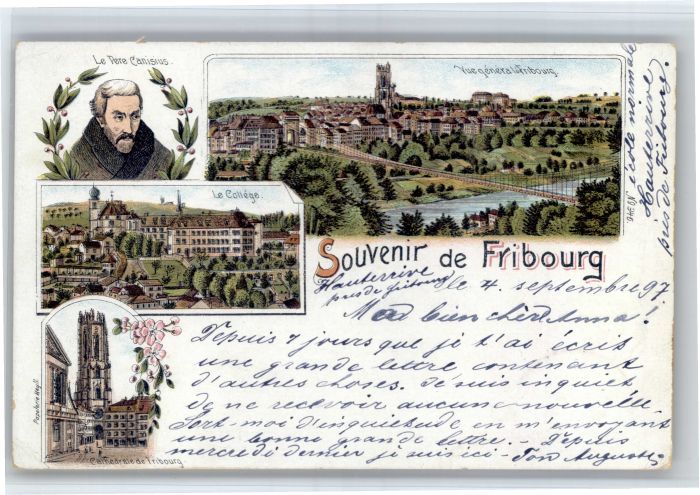 Le Père Canisius.
Vue générale Fribourg.
Le Collège.
Souvenir de Fribourg
No 946
école normale
Hauterrive
près de Fribourg.
Hauterrive
près de fribourg
le 4 septembre 97
Mad bien chère Anna!
Depuis 7 jours que je t'ai écrit
une grande lettre contenant
d'autres choses. Je suis inquiet
de ne recevoir aucune nouvelle.
Sort-moi d'inquiétude en m'envoyant
une bonne grande lettre. - Depuis
mercredi dernier je suis ici - Ton Auguste
Papeterie Meyll
Cathédrale de Fribourg.